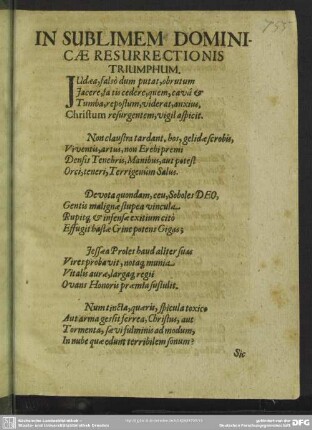 755
IN SUBLIMEM DOMINI-
CÆ RESURRECTIONIS
TRIUMPHUM.
IUdæa, falsò dum putat, obrutum
Jacere, fatis cedere, quem, cavâ &
Tumba, repostum, viderat, anxius,
Christum resurgentem, vigil aspicit.
Non claustra tardant, hos, gelidæ scrobis,
Viventis, artus, non Erebi premi
Densis Tenebris, Manibus, aut potest
Orci, teneri, Terrigenûm Salus.
Devota quondam, ceu, Soboles DEO,
Gentis malignæ stupea vincula
Rupitq; & infensæ exitium citò
Effugit hastæ Crine potens Gigas;
Jessæa Proles haud aliter suas
Vires probavit, notaq; munia
Vitalis auræ, largaq; regii
Ovans Honoris præmia sustulit.
Num tincta, quæris, spicula toxico
Aut arma gessit ferrea, Christus, aut
Tormenta, sævi fulminis ad modum,
In nube quæ edunt terribilem sonum?
Sic